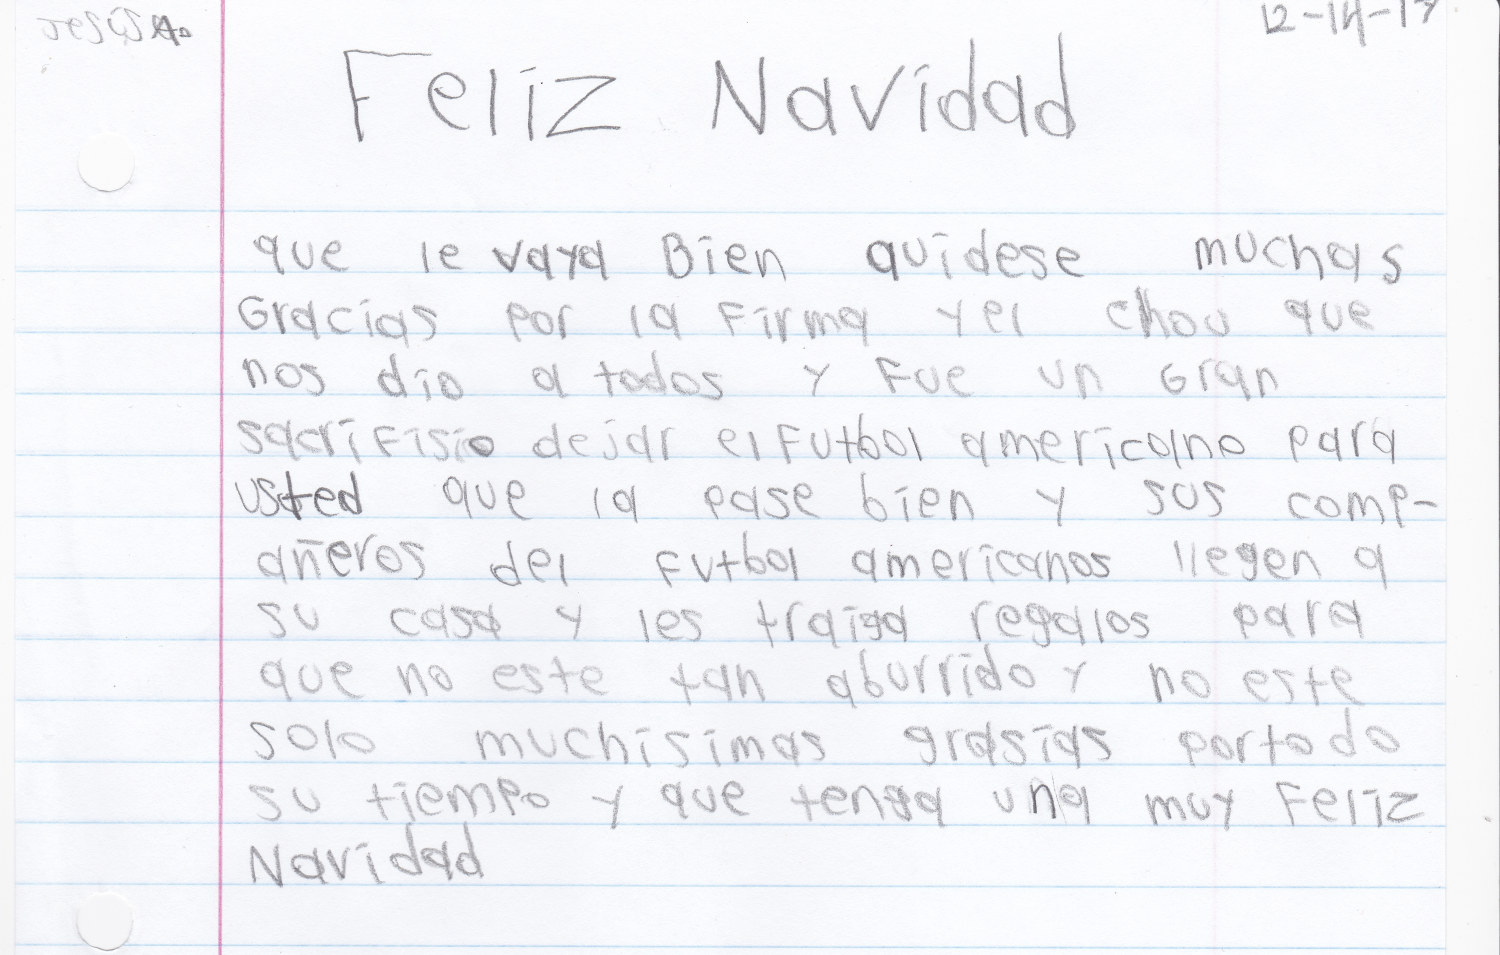 Jesús A.
12-14-17
Feliz Navidad
que le vaya Bien quidese muchas
Gracias por la firma y el chou que
nos dio a todos y fue un Gran
sacrifisio dejar el futbol americano para
usted que la pase bien y sus comp-
añeros del futbol americanos llegen a
su casa y les traiga regalos para
que no este tan aburrido y no este
solo muchisimas grasias por todo
su tiempo y que tenga una muy Feliz
Navidad